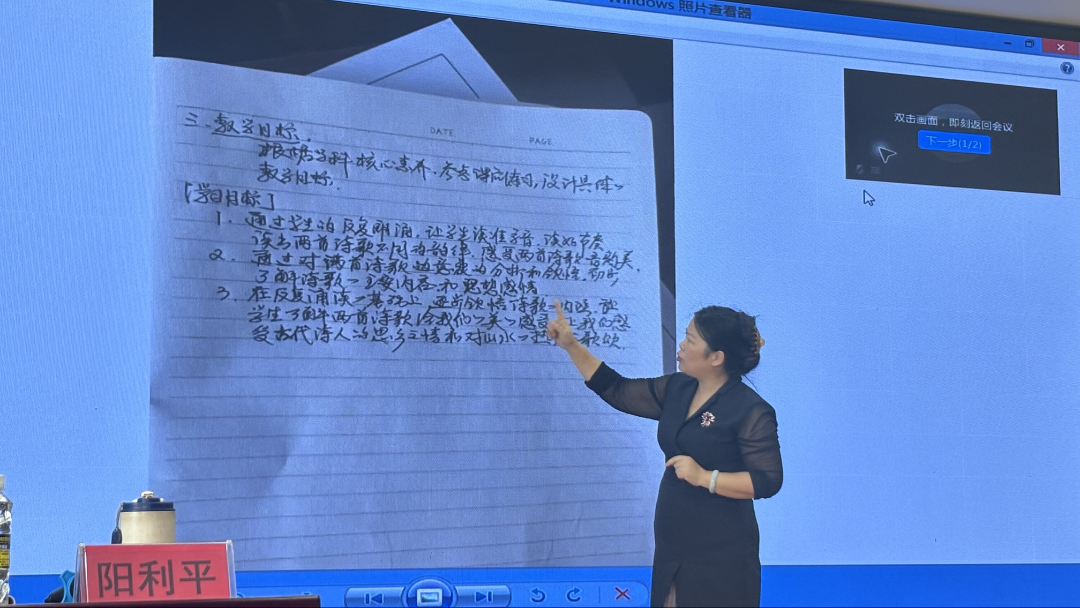 Windows 照片查看器
双击画面，即刻返回会议
下一步(1/2)
DATE
PAGE
三.教学目标.
根据学科核心素养.参考课后练习,设计具体
教学目标.
[学习目标]
1. 通过学生的反复朗诵,让学生读准字音.读好节奏
读出两首诗歌不同的韵律,感受两首诗歌音韵美.
2. 通过对两首诗歌的意象的分析和领悟,初步
了解诗歌主要内容和思想感情
3. 在反复诵读基础上,进步领悟诗歌内涵,让
学生了解两首诗歌给我们美感受,让我们感
受古代诗人的思乡之情和对山水歌颂.
阳利平